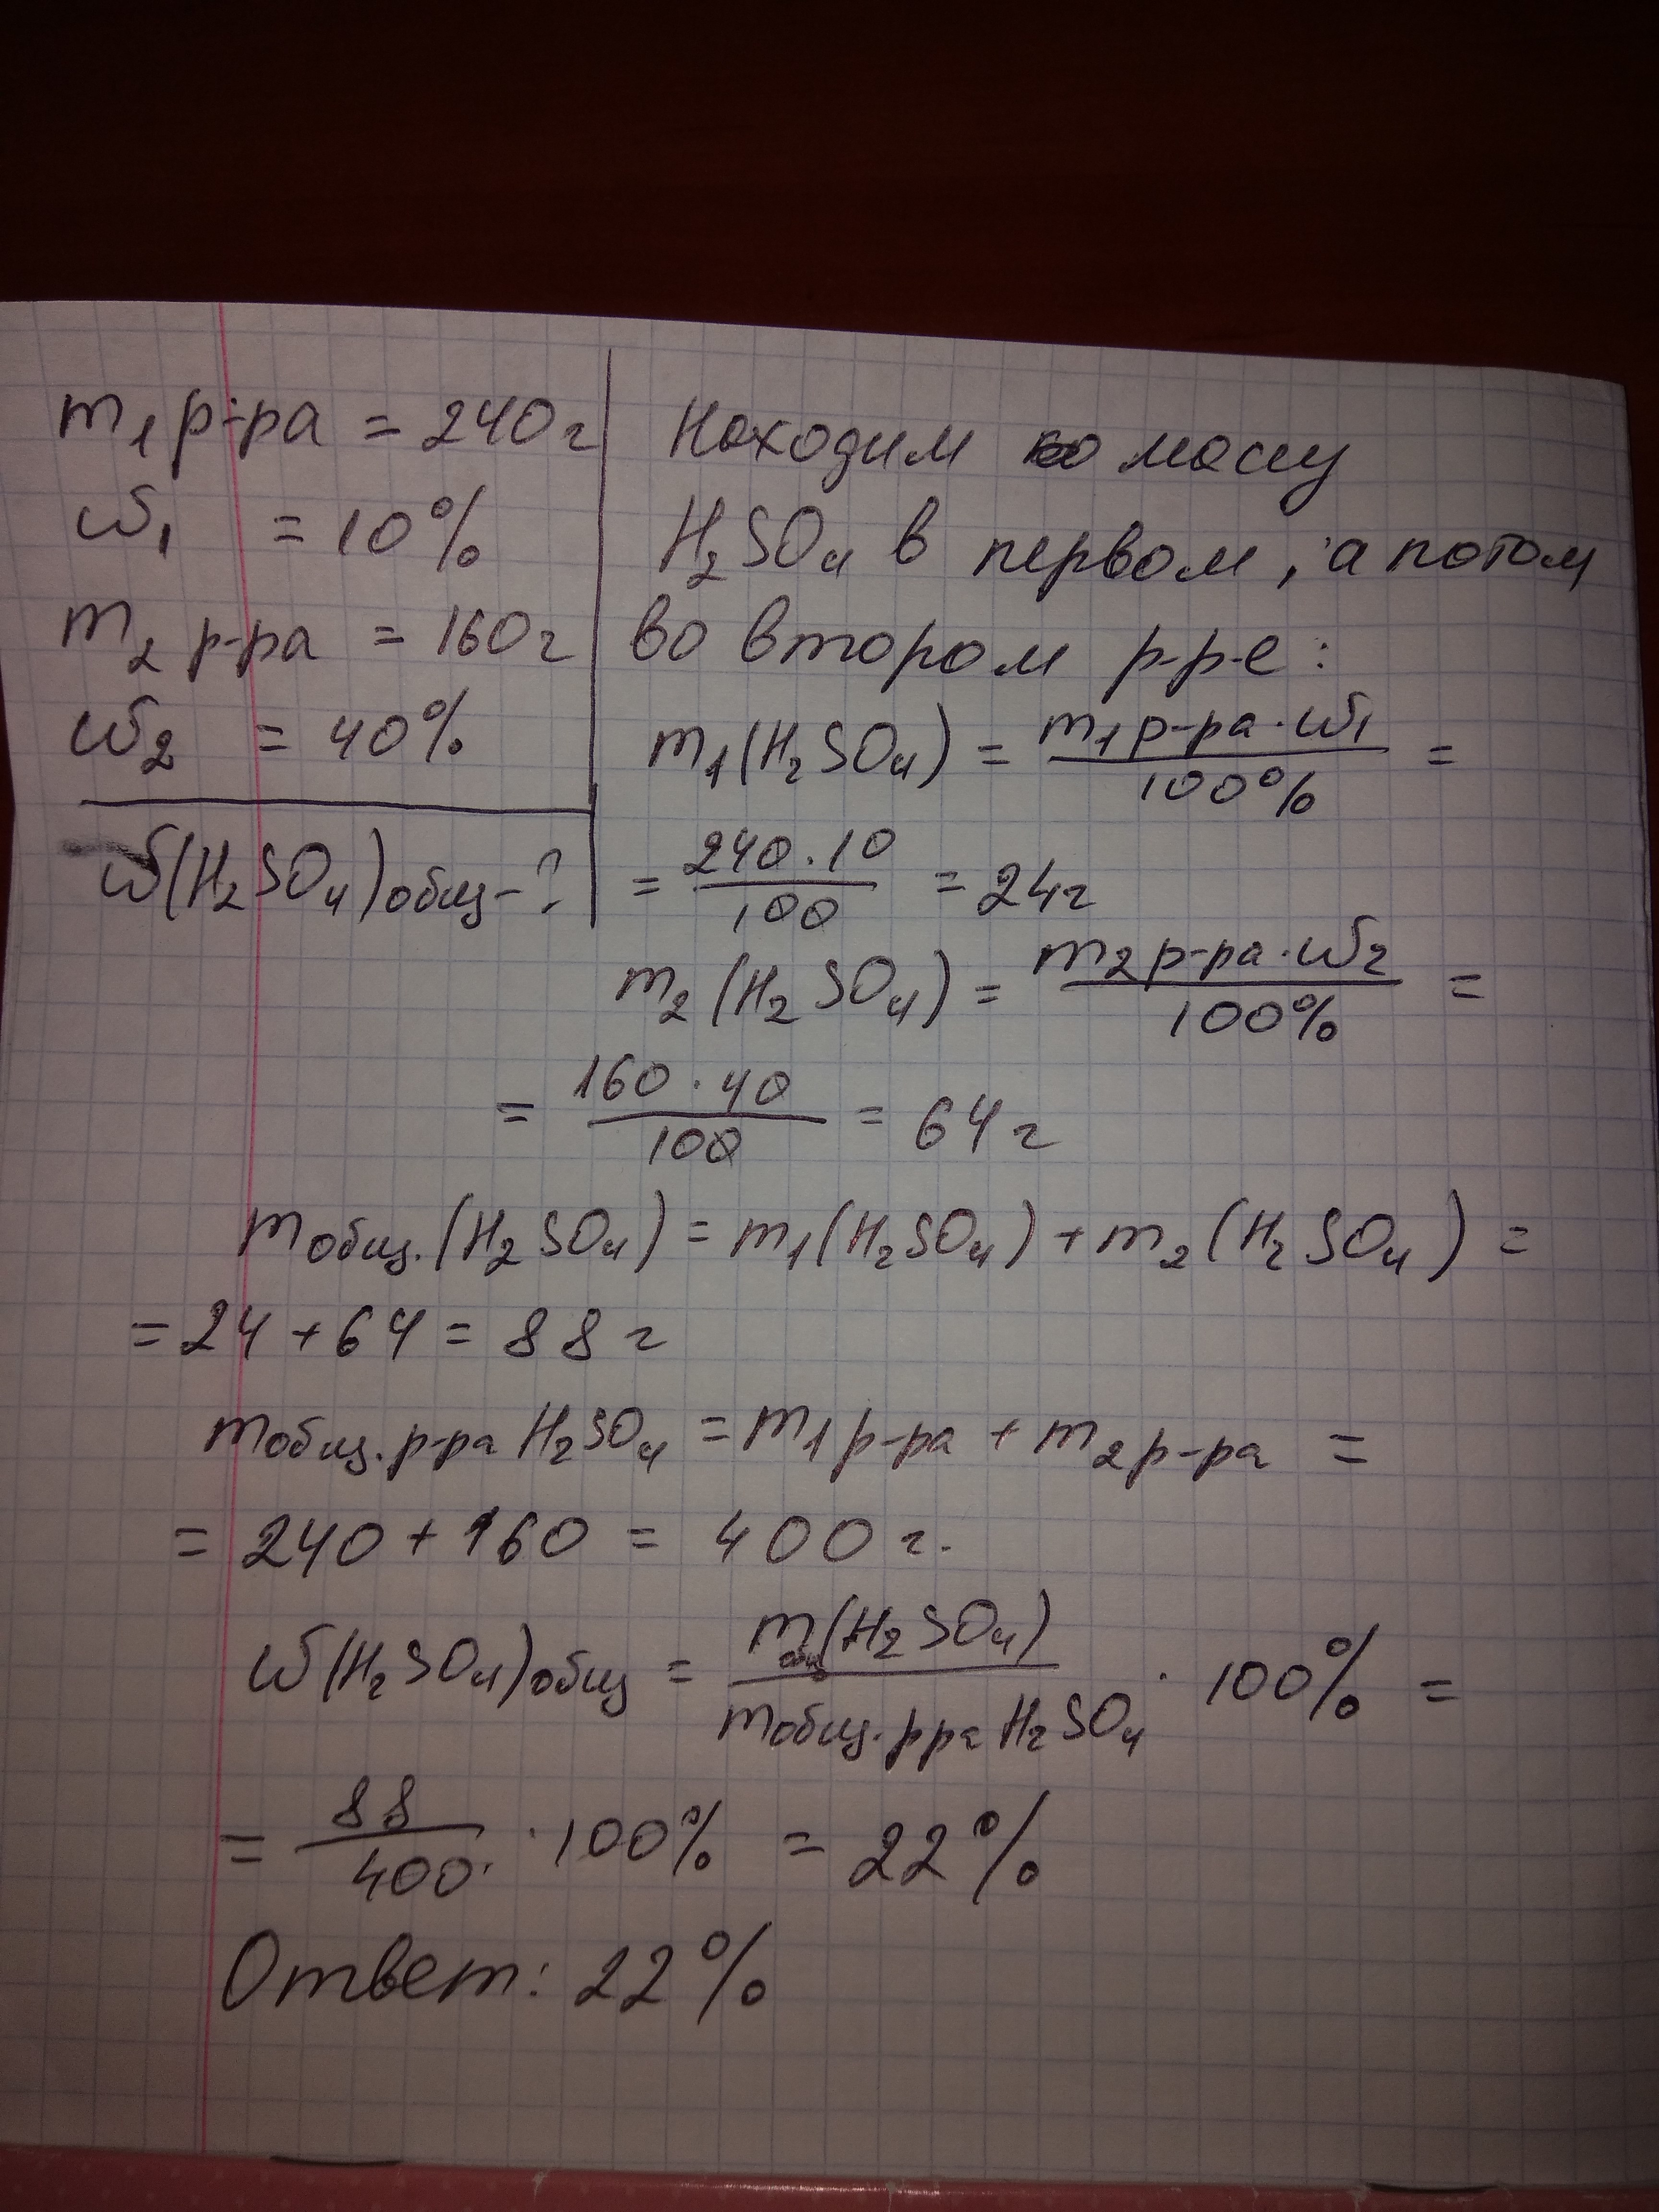 m₁ р-ра = 240г
ω₁ = 10%
m₂ р-ра = 160г
ω₂ = 40%
ω(H₂SO₄)общ-?
Находим массу
H₂SO₄ в первом, а потом
во втором р-ре:
m₁(H₂SO₄) = m₁р-ра·ω₁/100% =
= 240·10/100 = 24г
m₂(H₂SO₄) = m₂р-ра·ω₂/100% =
= 160·40/100 = 64г
mобщ.(H₂SO₄) = m₁(H₂SO₄) + m₂(H₂SO₄) =
= 24 + 64 = 88 г
mобщ.р-ра H₂SO₄ = m₁р-ра + m₂р-ра =
= 240 + 160 = 400 г.
ω(H₂SO₄)общ = mобщ(H₂SO₄)/mобщ.р-ра H₂SO₄ · 100% =
= 88/400 · 100% = 22%
Ответ: 22%